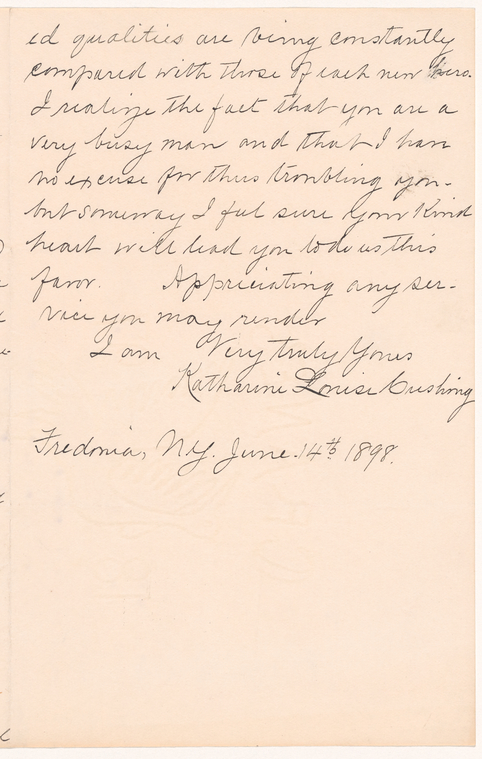 ed qualities are being constantly
compared with those of each new hero.
I realize the fact that you are a
very busy man and that I have
no excuse for thus troubling you-
but someway I feel sure your Kind
heart will lead you to do us this
favor. Appreciating any ser-
vice you may render
I am Very truly Yours
Katharine Louise Cushing
Fredonia, N.Y. June. 14th 1898.